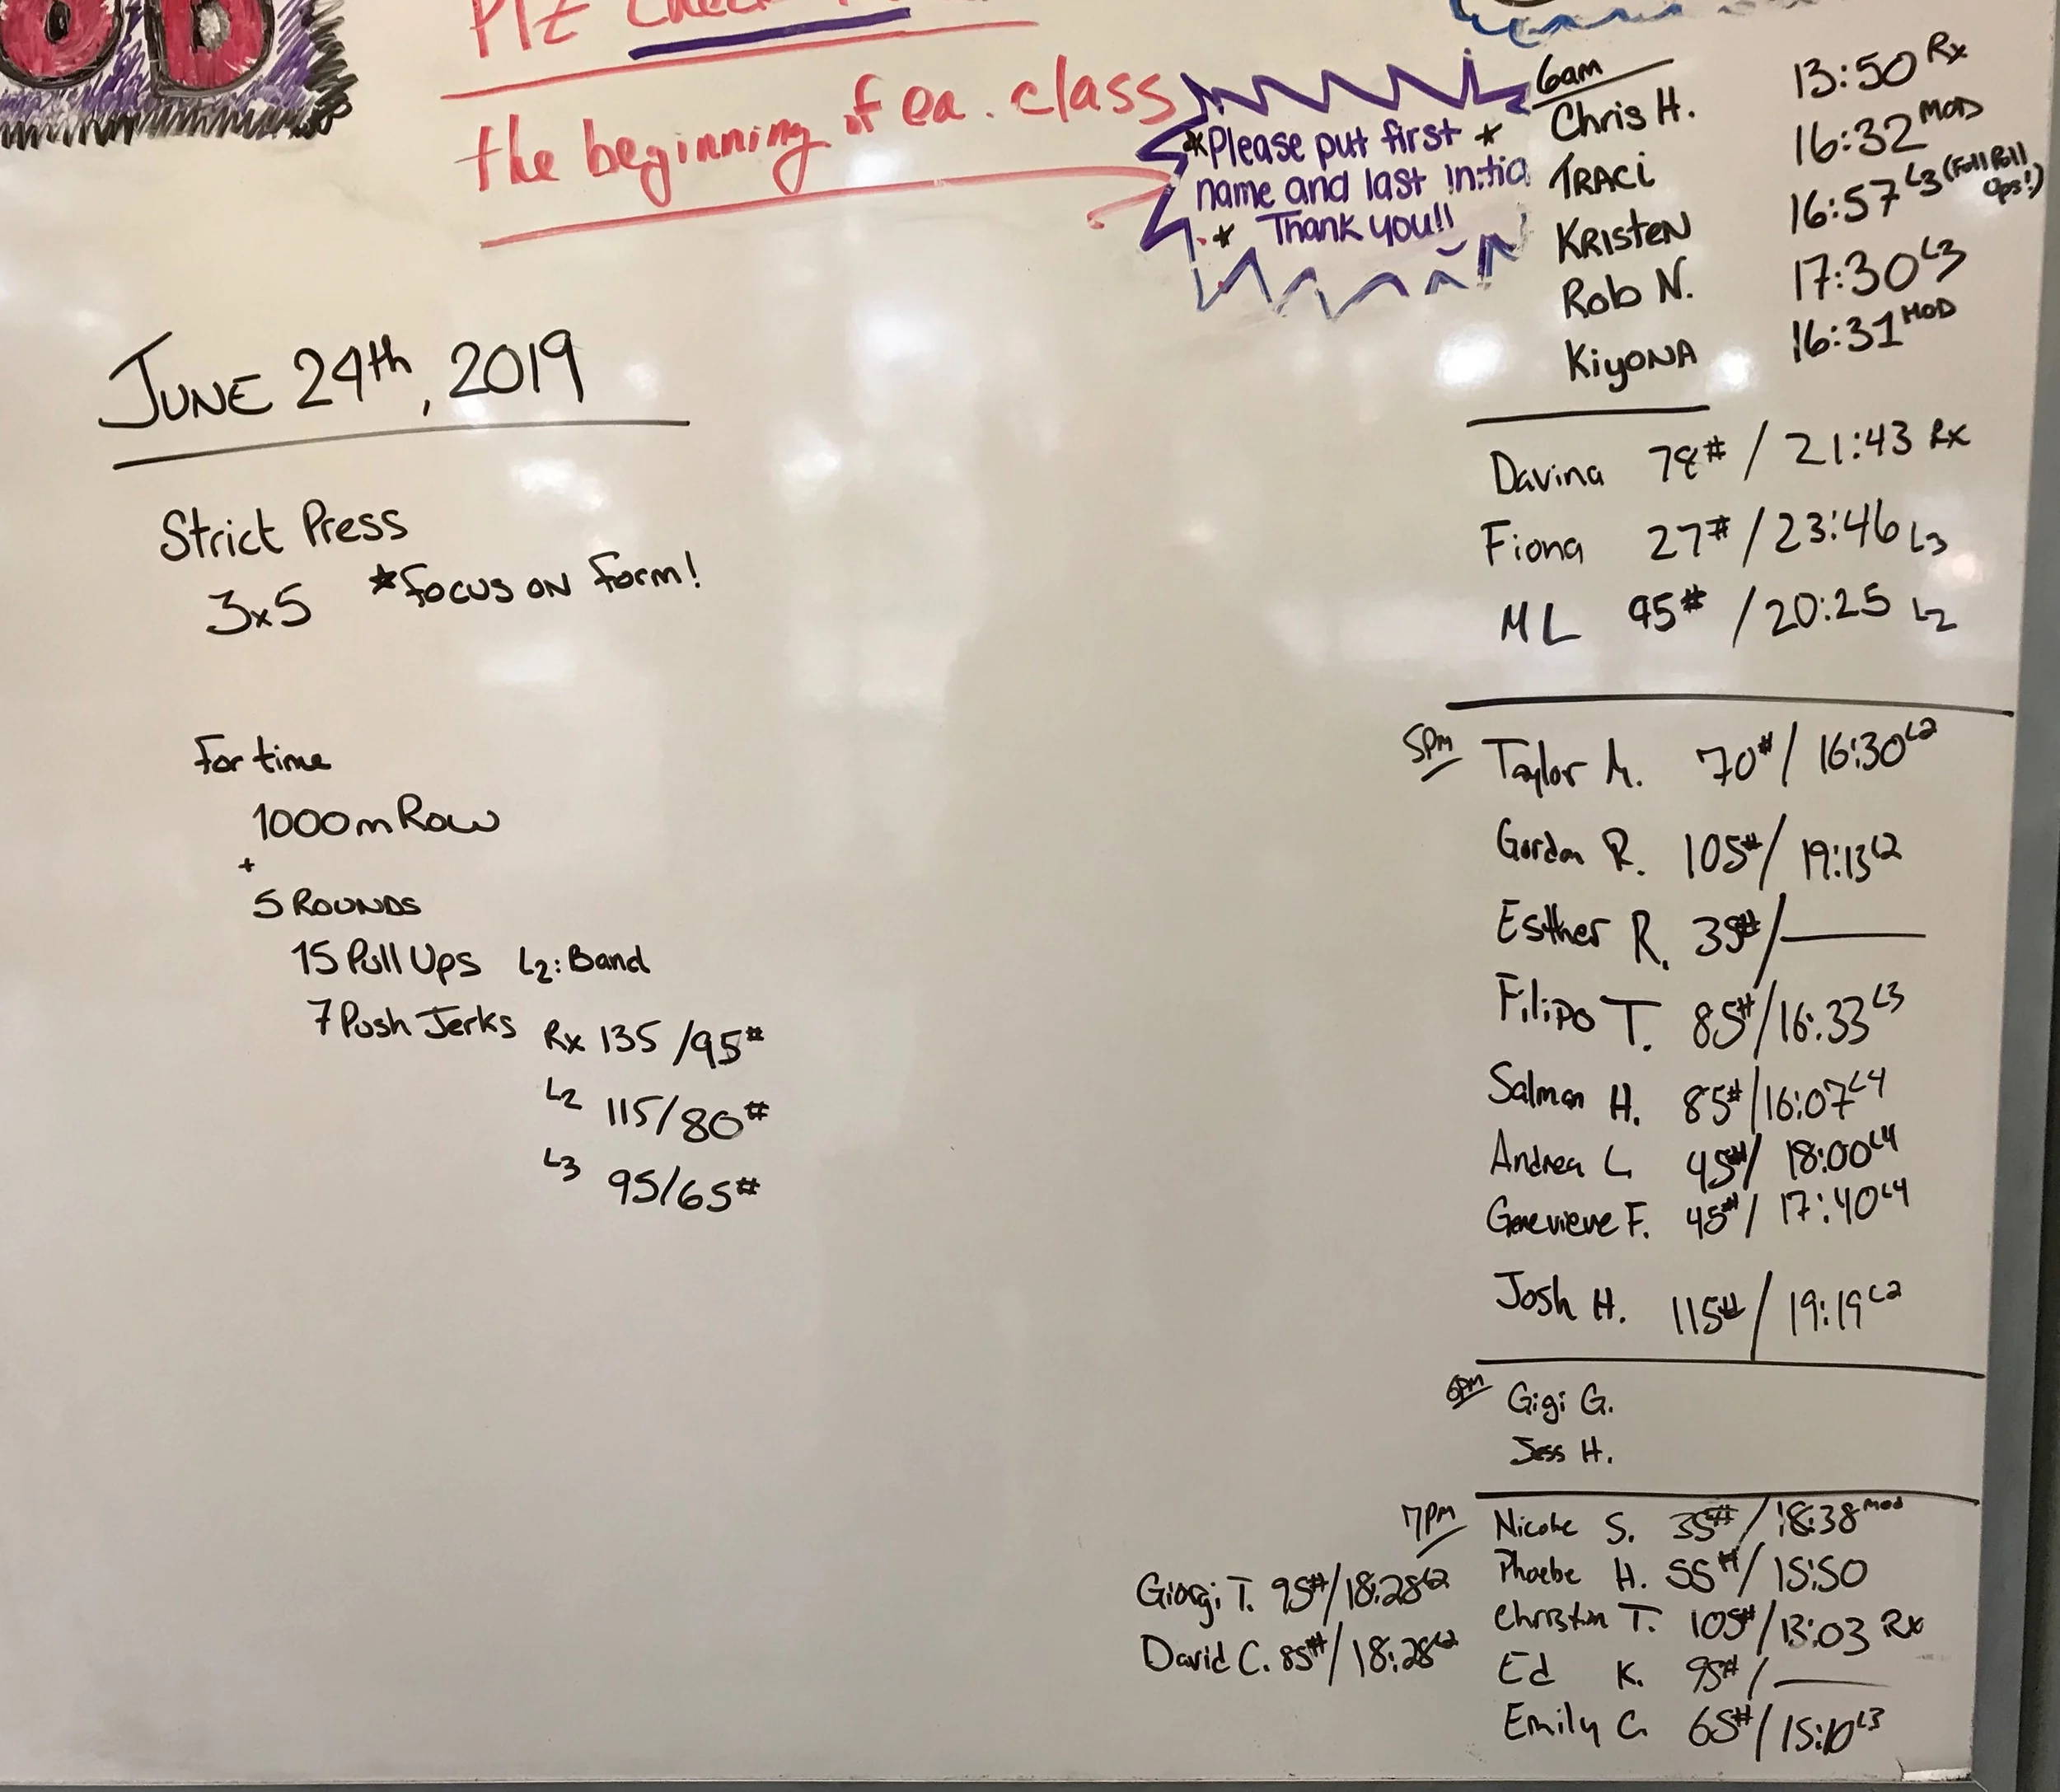 PLZ
the beginning of ea. class
*Please put first *
name and last initia
* Thank you!!
JUNE 24th, 2019
Strict Press
3x5 *Focus on form!
For time
1000m Row
+
5 Rounds
15 Pull Ups L2: Band
7 Push Jerks Rx 135/95#
L2 115/80#
L3 95/65#
6am
Chris H. 13:50 Rx
TRACi 16:32 MOD
KRISTEN 16:57 L3 (Full Pull Ups!)
Rob N. 17:30 L3
KiyONA 16:31 MOD
Davina 78# / 21:43 Rx
Fiona 27# / 23:46 L3
ML 95# / 20:25 L2
5pm
Taylor M. 70# / 16:30 L2
Gordon R. 105# / 19:13 L2
Esther R. 35# / —
Filipo T. 85# / 16:33 L3
Salman H. 85# / 16:07 L4
Andrea L 45# / 18:00 L4
Genevieve F. 45# / 17:40 L4
Josh H. 115# / 19:19 L2
6pm
Gigi G.
Jess H.
7pm
Nicole S. 35# / 18:38 mod
Phoebe H. 55# / 15:50
Christian T. 105# / 13:03 Rx
Ed K. 95# / —
Emily C. 65# / 15:10 L3
Giorgi T. 95# / 18:28 L2
David C. 85# / 18:28 L2